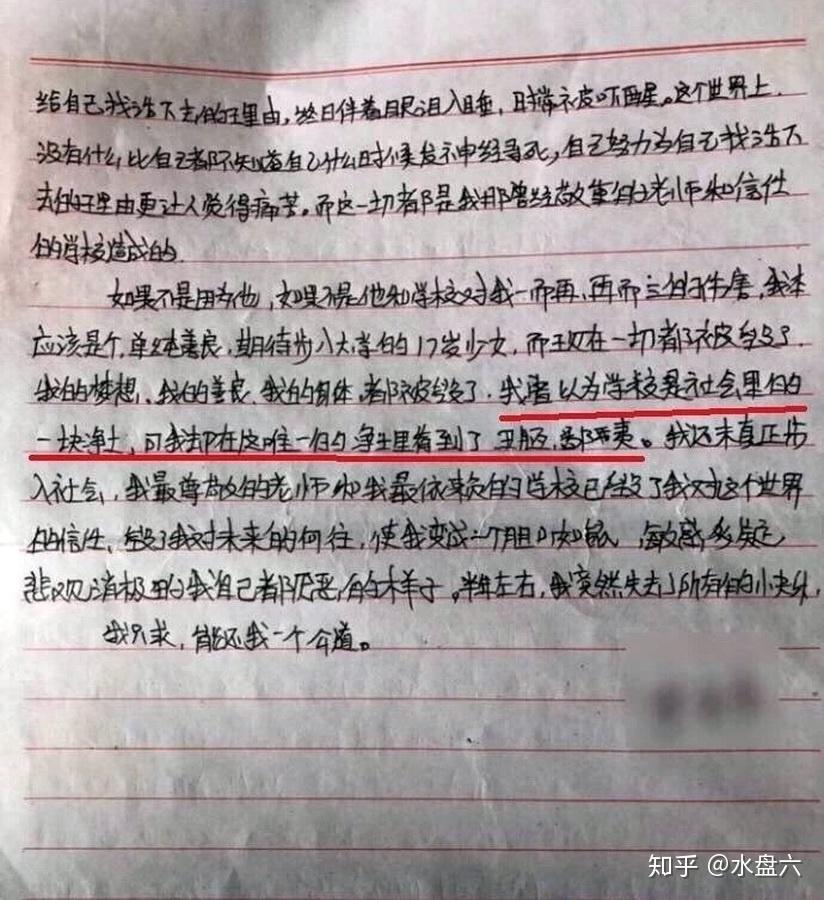 给自己找活下去的理由，终日伴着眼泪入睡，时常被皮吓醒。这个世界上
没有什么比自己都不知道自己什么时候发神经寻死，自己努力为自己找活下
去的理由更让人觉得痛苦。而这一切都是我那曾经敬重的老师和信任
的学校造成的。
如果不是因为他，如果不是他和学校对我一而再，再而三的伤害，我本
应该是个单纯善良，期待步入大学的17岁少女，而现在一切都被毁了，
我的梦想、我的善良、我的身体，都被毁了。我曾以为学校是社会里的
一块净土，可我却在这唯一的净土里看到了丑陋，鄙夷。我还未真正步
入社会，我最尊敬的老师和我最依赖的学校已毁了我对这个世界
的信任，毁了我对未来的向往，使我变成一个胆小如鼠，敏感多疑，
悲观消极的我自己都厌恶的样子。半年左右，我突然失去了所有的小夬乐，
我只求，能还我一个公道。
知乎 @水盘六